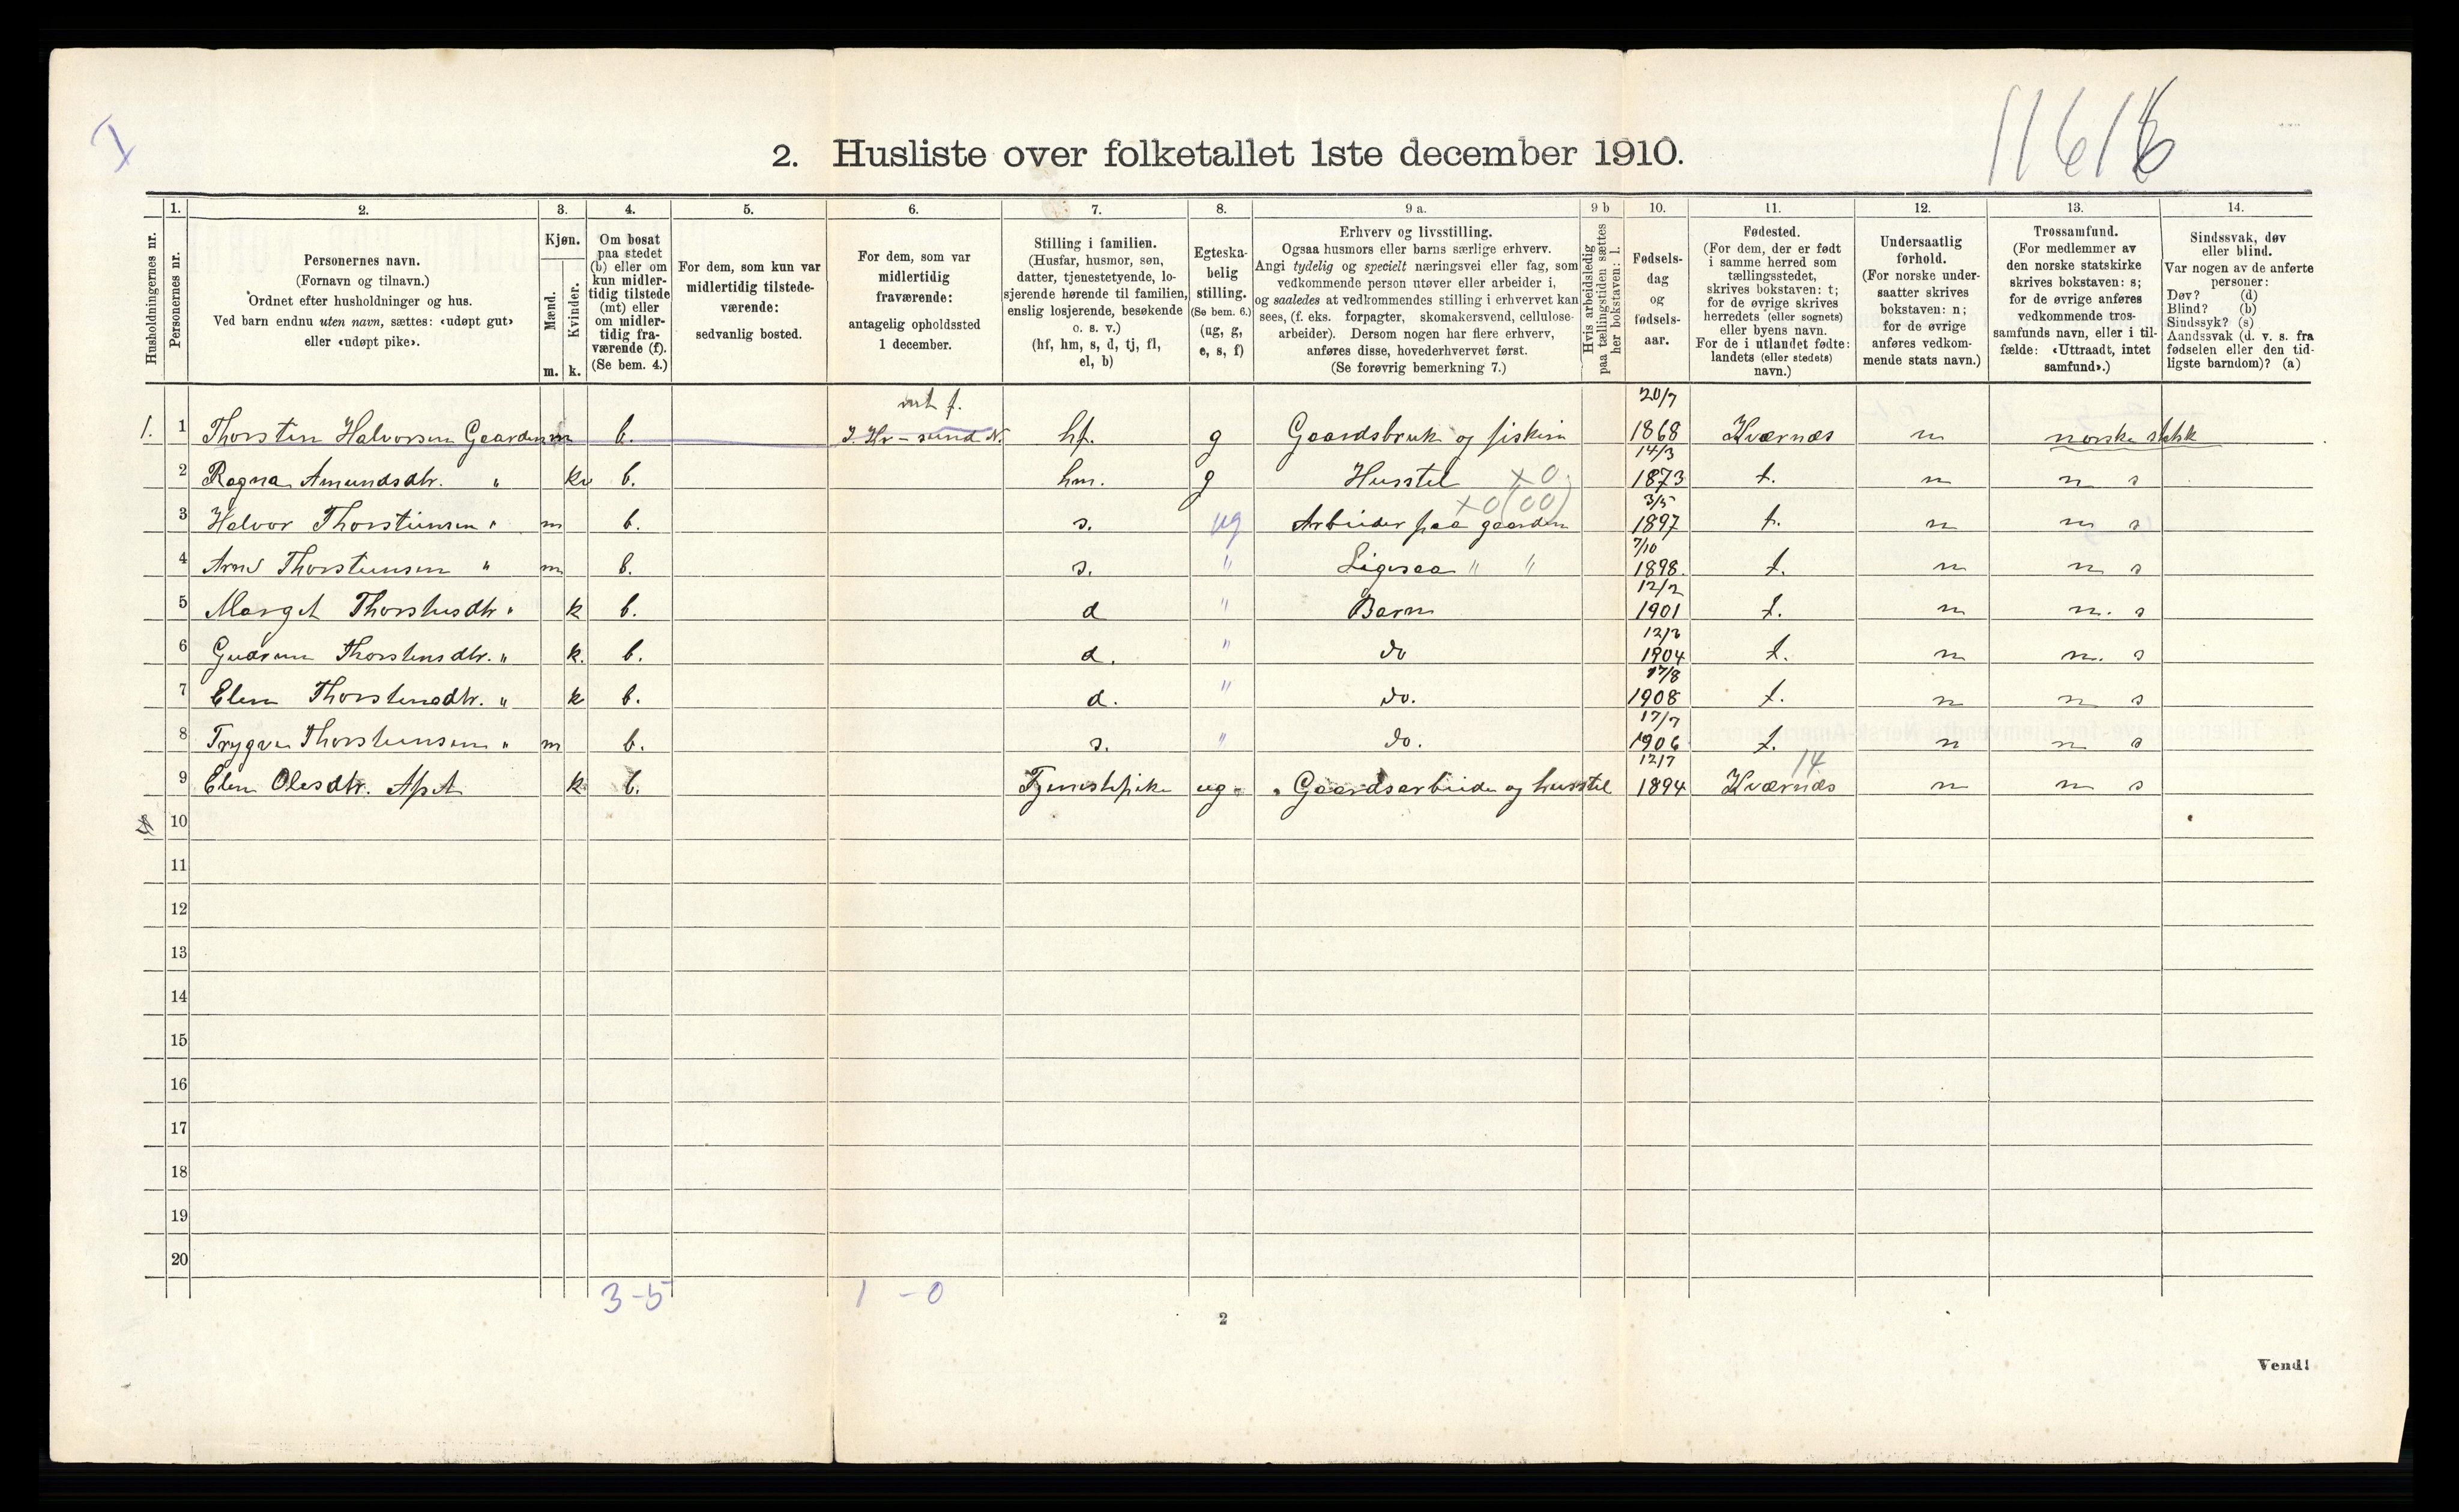 I
11616
2. Husliste over folketallet 1ste december 1910.
Husholdningernes nr.
1. Personernes nr.
2. Personernes navn.
(Fornavn og tilnavn.)
Ordnet efter husholdninger og hus.
Ved barn endnu uten navn, sættes: «udøpt gut»
eller «udøpt pike».
3. Kjøn.
Mænd. m.
Kvinder. k.
4. Om bosat
paa stedet
(b) eller om
kun midler-
tidig tilstede
(mt) eller
om midler-
tidig fra-
værende (f).
(Se bem. 4.)
5. For dem, som kun var
midlertidig tilstede-
værende:
sedvanlig bosted.
6. For dem, som var
midlertidig
fraværende:
antagelig opholdssted
1 december.
7. Stilling i familien.
(Husfar, husmor, søn,
datter, tjenestetyende, lo-
sjerende hørende til familien,
enslig losjerende, besøkende
o. s. v.)
(hf, hm, s, d, tj, fl,
el, b)
8. Egteska-
belig
stilling.
(Se bem. 6.)
(ug, g,
e, s, f)
9 a. Erhverv og livsstilling.
Ogsaa husmors eller barns særlige erhverv.
Angi tydelig og specielt næringsvei eller fag, som
vedkommende person utøver eller arbeider i,
og saaledes at vedkommendes stilling i erhvervet kan
sees, (f. eks. forpagter, skomakersvend, cellulose-
arbeider). Dersom nogen har flere erhverv,
anføres disse, hovederhvervet først.
(Se forøvrig bemerkning 7.)
9 b Hvis arbeidsledig
paa tællingstiden sættes
her bokstaven: l.
10. Fødsels-
dag
og
fødsels-
aar.
11. Fødested.
(For dem, der er født
i samme herred som
tællingsstedet,
skrives bokstaven: t;
for de øvrige skrives
herredets (eller sognets)
eller byens navn.
For de i utlandet fødte:
landets (eller stedets)
navn.)
12. Undersaatlig
forhold.
(For norske under-
saatter skrives
bokstaven: n;
for de øvrige
anføres vedkom-
mende stats navn.)
13. Trossamfund.
(For medlemmer av
den norske statskirke
skrives bokstaven: s;
for de øvrige anføres
vedkommende tros-
samfunds navn, eller i til-
fælde: «Uttraadt, intet
samfund».)
14. Sindssvak, døv
eller blind.
Var nogen av de anførte
personer:
Døv? (d)
Blind? (b)
Sindssyk? (s)
Aandssvak (d. v. s. fra
fødselen eller den tid-
ligste barndom)? (a)
mt f. 20/7
1. 1 Thorsten Halvorsen Gaarden m b. I. Kr-sund N. hf. g Gaardsbruk og fiskeri 1868 Kværnes n norske statsk
14/3
2 Ragna Amundsdtr. " kv b. hm. g Husstel x 0 1873 t. n n s
x 0 (00) 3/5
3 Halvor Thorsteinsen " m b. s. ug Arbeider paa gaarden 1897 t. n n s
7/10
4 Arne Thorsteinsen " m b. s. " Ligesaa " " 1898. t. n n s
12/2
5 Marget Thorstensdtr " k b. d " Barn 1901 t. n n. s
12/3
6 Gudrun Thorstensdtr. " k. b. d. " do 1904 t. n n. s
17/8
7 Elen Thorstensdtr. " k b. d. " do. 1908 t. n n s
17/7
8 Trygve Thorsteinsen " m b. s. " do. 1906 t. n n s
12/7 14
9 Elen Olesdtr. Apst k b. Tjenestepike ug. Gaardsarbeide og husstel 1894 Kværnes n n s
10
11
12
13
14
15
16
17
18
19
20
3-5 1-0
2
Vend!